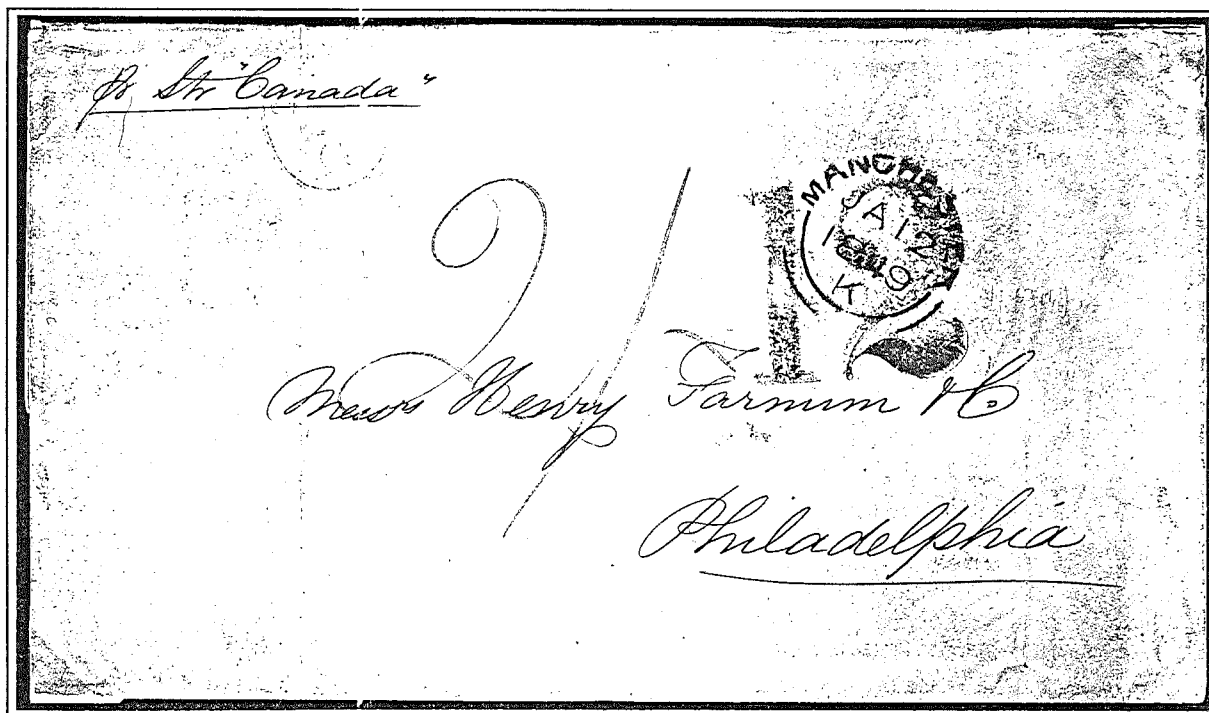 pr Str "Canada"
MANCHESTER
A 12
1849
K
2/
12
Messrs Henry Farnum & Co
Philadelphia